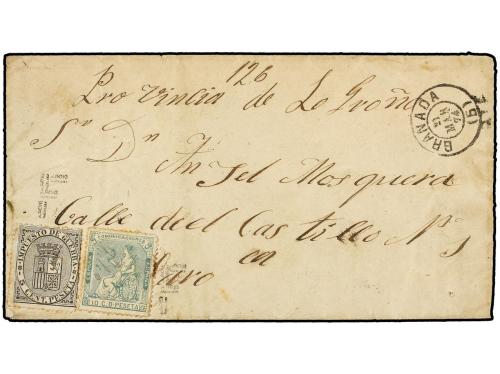 126
Provincia de Logroño
Sr Dn
Angel Mosquera
Calle deel Castillo Nº 1
en
Haro
GRANADA
(5)
MAR
74
IMPUESTO DE GUERRA
5 CENT. PESETA
COMUNICACIONES
10 C. DE PESETA